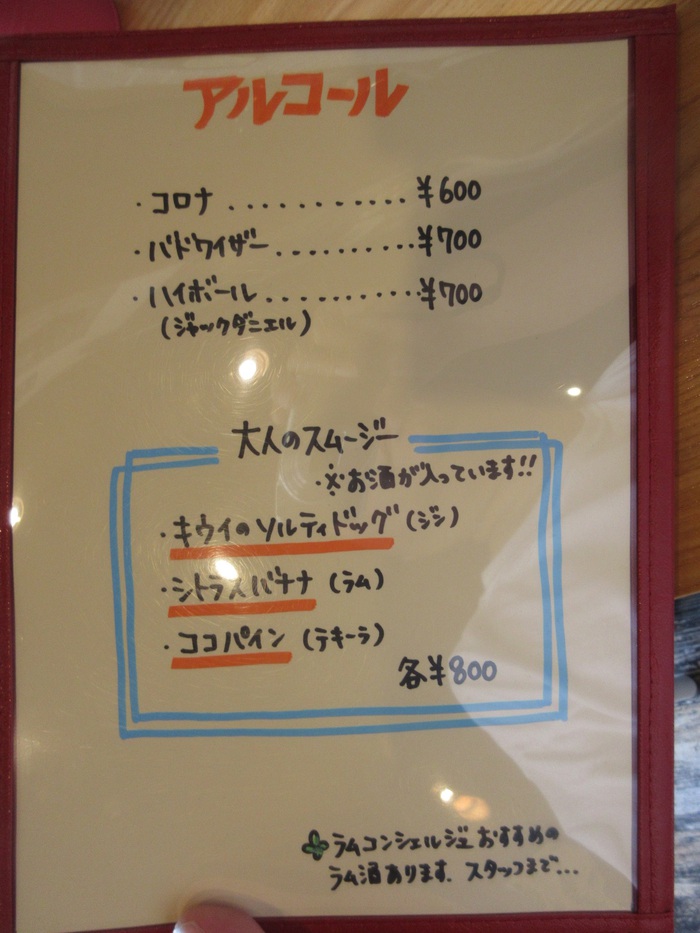 アルコール
・コロナ ............ ¥600
・バドワイザー .......... ¥700
・ハイボール ........... ¥700
(ジャックダニエル)
大人のスムージー
・※お酒が入っています!!
・キウイのソルティドッグ (ジン)
・シトラスバナナ (ラム)
・ココパイン (テキーラ)
各¥800
ラムコンシェルジュおすすめの
ラム酒あります. スタッフまで...